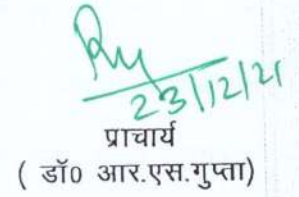 23/12/21
प्राचार्य
( डॉ0 आर.एस.गुप्ता)